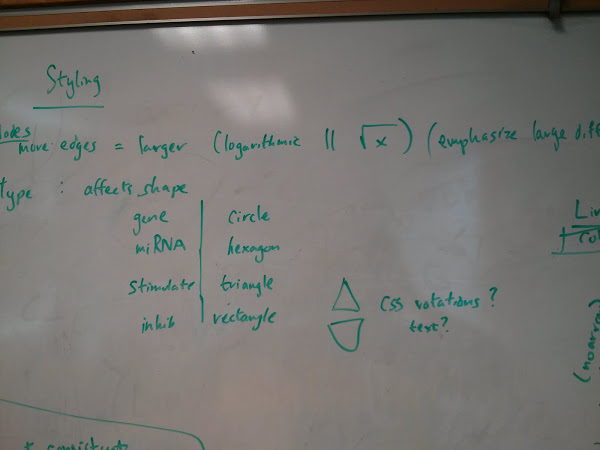 Styling
Nodes
more edges = larger (logarithmic || √x) (emphasize large diffe
type : affects shape
gene circle
miRNA hexagon
stimulate triangle
inhib rectangle
CSS rotations?
text?
Lin
Col
(noarrow